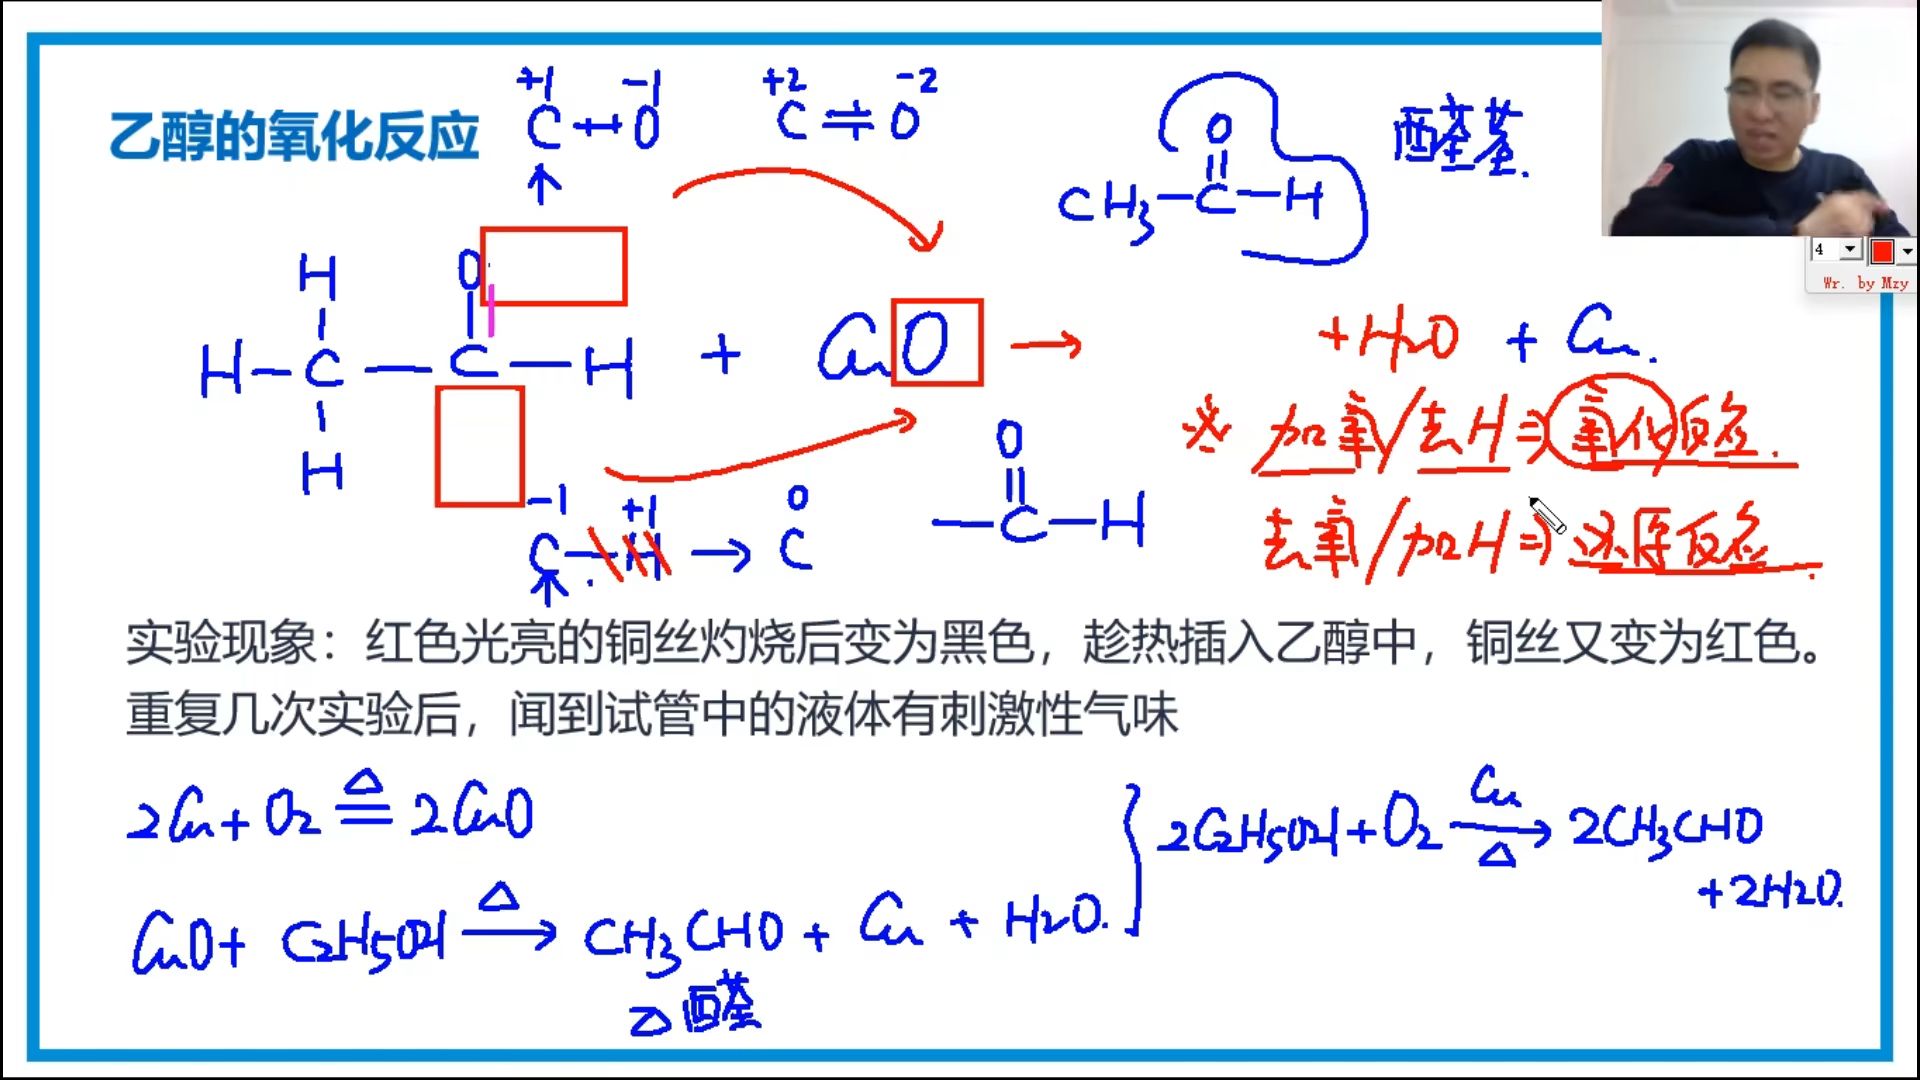 乙醇的氧化反应
+1 -1
C—O
+2 -2
C=O
O
CH3—C—H
醛基.
4
Wr. by Mzy
H O
H—C—C—H + CuO → +H2O + Cu.
H
※ 加氧/去H⇒氧化反应.
去氧/加H⇒还原反应.
-1 +1 0
C—H → C
O
—C—H
实验现象：红色光亮的铜丝灼烧后变为黑色，趁热插入乙醇中，铜丝又变为红色。
重复几次实验后，闻到试管中的液体有刺激性气味
△
2Cu+O2═2CuO
△
CuO+ C2H5OH → CH3CHO + Cu + H2O.
乙醛
Cu
2C2H5OH+O2 → 2CH3CHO
△
+2H2O.